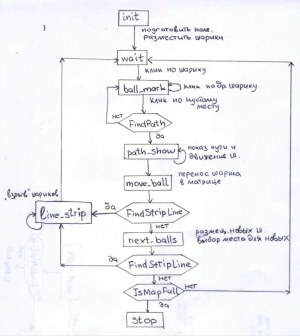 init
подготовить поле.
Разместить шарики
wait
клик по шарику
ball_mark
клик по др. шарику
клик по пустому
месту
нет
FindPath
да
path_show
показ пути и
движение ш.
move_ball
перенос шарика
в матрице
"взрыв" шариков
line_strip
да
FindStripLine
нет
next_balls
размещ. новых ш
выбор места для новых
да
FindStripLine
нет
IsMapFull
нет
да
Stop